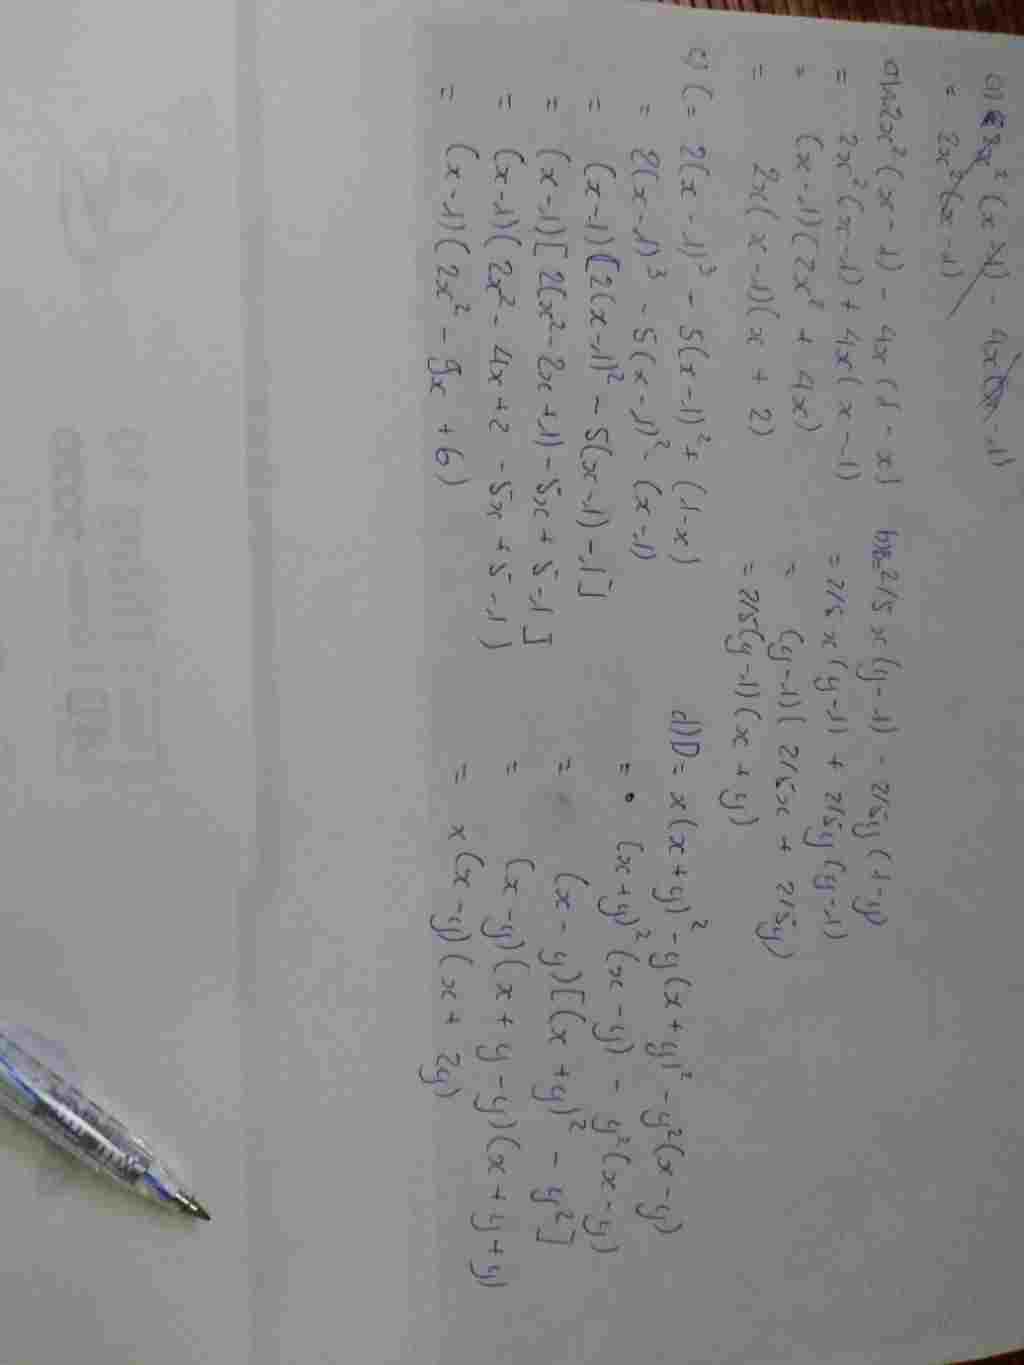 a) 2x² (x-1) - 4x(x-1)
= 2x²(x-1)
a) 2x²(x-1) - 4x(1-x)
= 2x²(x-1) + 4x(x-1)
= (x-1)(2x² + 4x)
= 2x(x-1)(x+2)
b) 2/5 x(y-1) - 2/5y(1-y)
= 2/5 x(y-1) + 2/5y(y-1)
= (y-1)(2/5x + 2/5y)
= 2/5(y-1)(x+y)
c) C = 2(x-1)³ - 5(x-1)² + (1-x)
= 2(x-1)³ - 5(x-1)² - (x-1)
= (x-1)[2(x-1)² - 5(x-1) - 1]
= (x-1)[2(x² - 2x + 1) - 5x + 5 - 1]
= (x-1)(2x² - 4x + 2 - 5x + 5 - 1)
= (x-1)(2x² - 9x + 6)
d) D = x(x+y)² - y(x+y)² - y²(x-y)
= (x+y)²(x-y) - y²(x-y)
= (x-y)[(x+y)² - y²]
= (x-y)(x+y-y)(x+y+y)
= x(x-y)(x+2y)